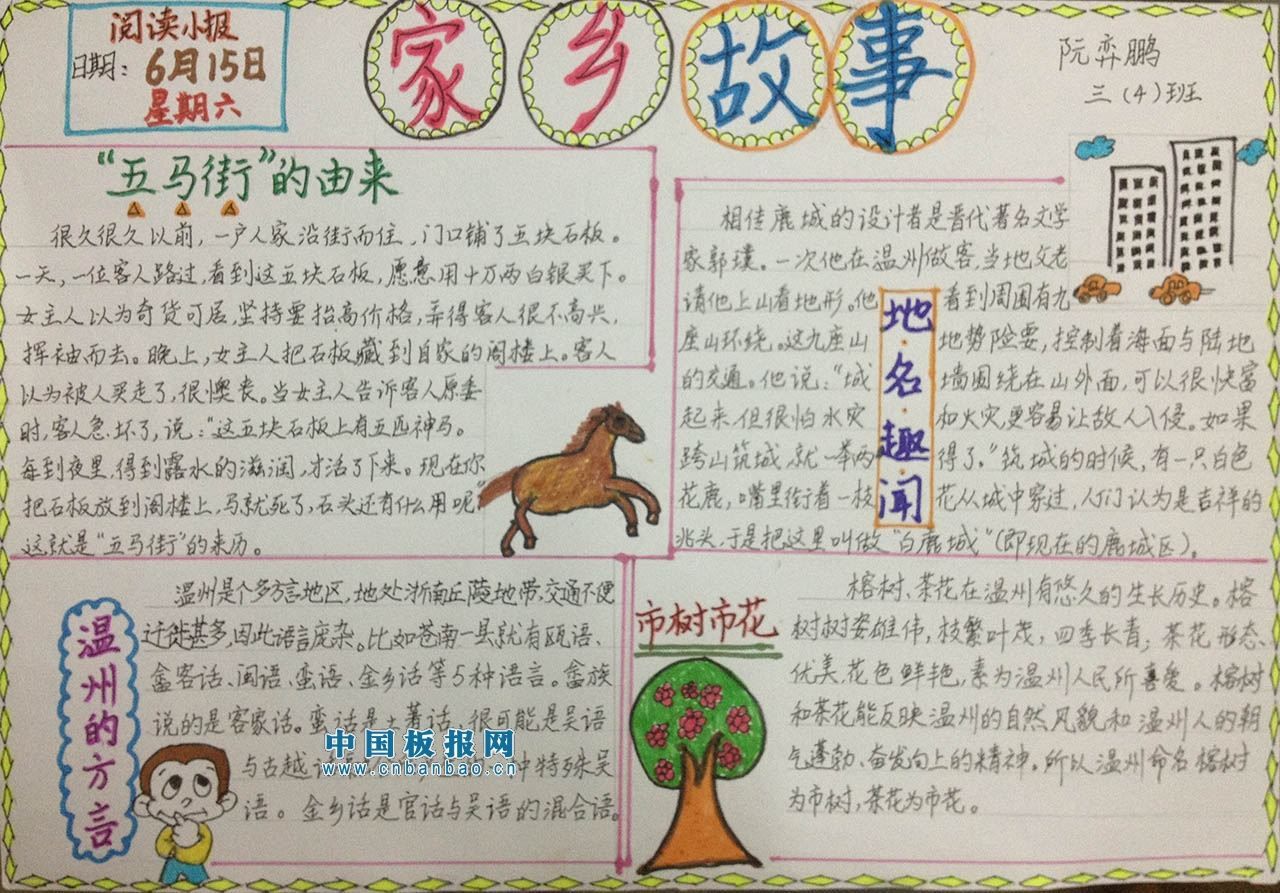 阅读小报
日期：6月15日
星期六
家乡故事
阮弈鹏
三（4）班
“五马街”的由来
很久很久以前，一户人家沿街而住，门口铺了五块石板。
一天，一位客人路过，看到这五块石板，愿意用十万两白银买下。
女主人以为奇货可居，坚持要抬高价格，弄得客人很不高兴，
挥袖而去。晚上，女主人把石板藏到自家的阁楼上。客人
以为被人买走了，很懊丧。当女主人告诉客人原委
时，客人急坏了，说：“这五块石板上有五匹神马。
每到夜里，得到露水的滋润，才活了下来。现在你
把石板放到阁楼上，马就死了，石头还有什么用呢”
这就是“五马街”的来历。
地名趣闻
相传鹿城的设计者是晋代著名文学
家郭璞。一次他在温州做客，当地父老
请他上山看地形。他看到周围有九
座山环绕。这九座山地势险要，控制着海面与陆地
的交通。他说：“城墙围绕在山外面，可以很快富
起来，但很怕水灾和火灾，更容易让敌人入侵。如果
跨山筑城，就一举两得了。”筑城的时候，有一只白色
花鹿，嘴里衔着一枝花从城中穿过，人们认为是吉祥的
兆头，于是把这里叫做“白鹿城”（即现在的鹿城区）。
温州的方言
温州是个多方言地区，地处浙南丘陵地带，交通不便
迁徙甚多，因此语言庞杂。比如苍南一县就有瓯语、
畲客话、闽语、蛮语、金乡话等5种语言。畲族
说的是客家话。蛮话是土著话，很可能是吴语
与古越 中特殊吴
语。金乡话是官话与吴语的混合语。
中国板报网
www.cnbanbao.cn
市树市花
榕树、茶花在温州有悠久的生长历史。榕
树树姿雄伟，枝繁叶茂，四季长青；茶花形态
优美，花色鲜艳，素为温州人民所喜爱。榕树
和茶花能反映温州的自然风貌和温州人的朝
气蓬勃、奋发向上的精神。所以温州命名榕树
为市树，茶花为市花。